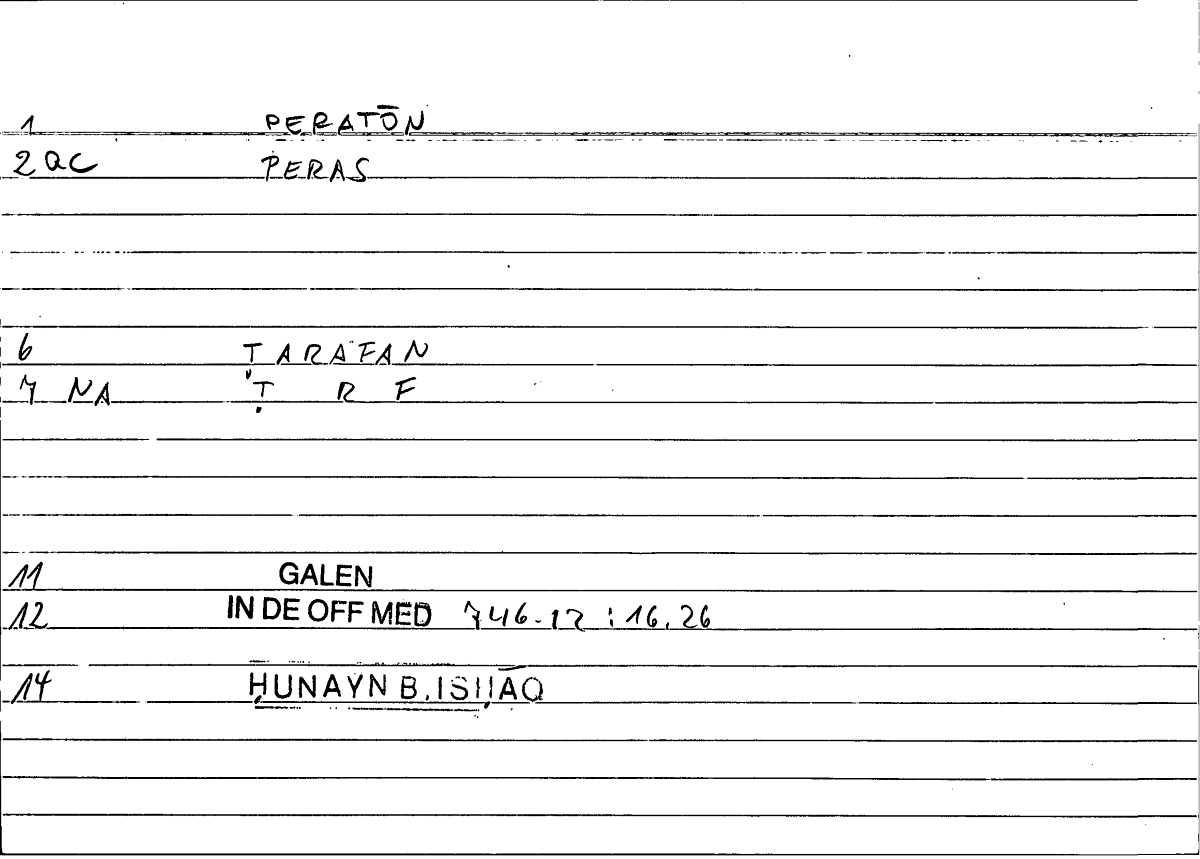 1 PERATŌN
2 ac PERAS
6 ṬARAFAN
7 NA Ṭ R F
11 GALEN
12 IN DE OFF MED 746.12 : 16.26
14 ḤUNAYN B. ISḤĀQ